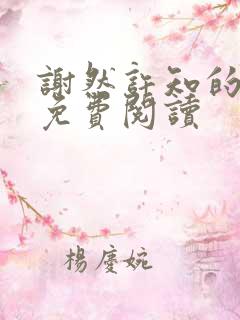 謝然許知的
免費閱讀
楊慶婉